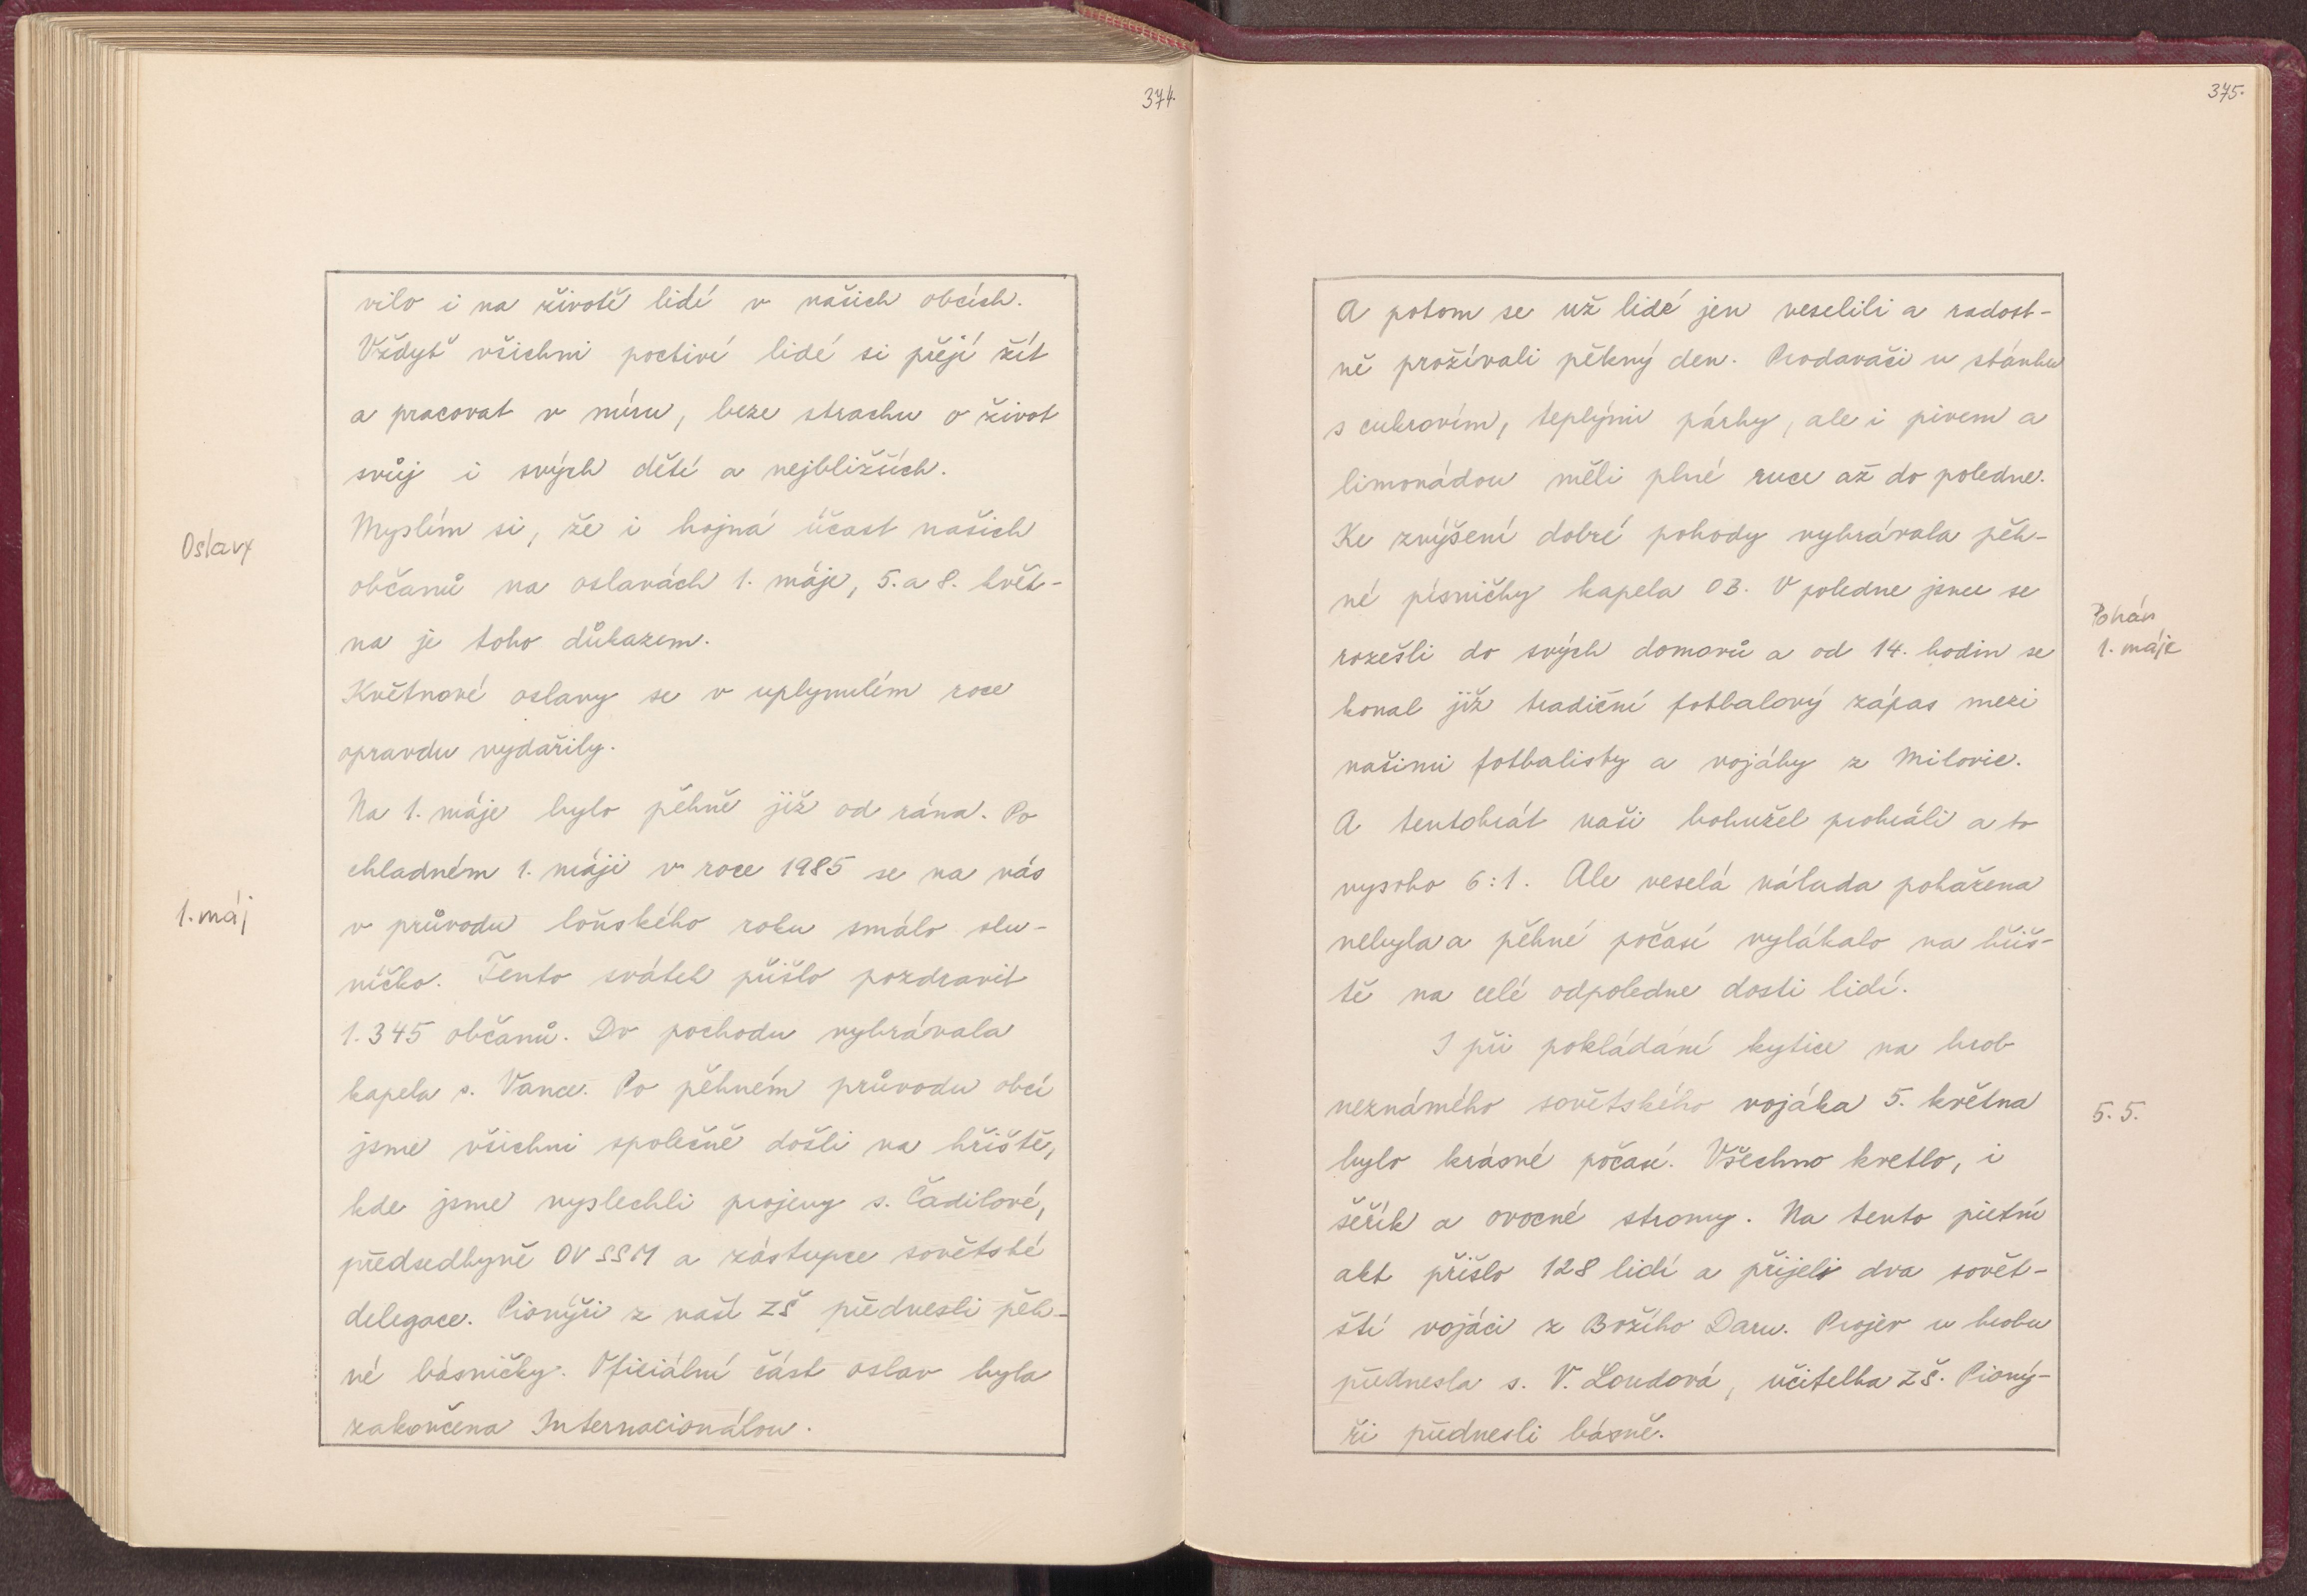 374.
vilo i na životě lidí v našich obcích.
Vždyť všichni poctiví lidé si přejí žít
a pracovat v míru, beze strachu o život
svůj i svých dětí a nejbližších.
Oslavy
Myslím si, že i hojná účast našich
občanů na oslavách 1. máje, 5. a 8. květ-
na je toho důkazem.
Květnové oslavy se v uplynulém roce
opravdu vydařily.
Na 1. máje bylo pěkně již od rána. Po
chladném 1. máji v roce 1985 se na nás
1. máj
v průvodu loňského roku smálo slu-
níčko. Tento svátek přišlo pozdravit
1.345 občanů. Do pochodu vyhrávala
kapela s. Vance. Po pěkném průvodu obcí
jsme všichni společně došli na hřiště,
kde jsme vyslechli projevy s. Čadilové,
předsedkyně OV SSM a zástupce sovětské
delegace. Pionýři z naší ZŠ přednesli pěk-
né básničky. Oficiální část oslav byla
zakončena Internacionálou.
375.
A potom se už lidé jen veselili a radost-
ně prožívali pěkný den. Prodavači u stánku
s cukrovím, teplými párky, ale i pivem a
limonádou měli plné ruce až do poledne.
Ke zvýšení dobré pohody vyhrávala pěk-
né písničky kapela OB. V poledne jsme se
Pohár
1. máje
rozešli do svých domovů a od 14. hodin se
konal již tradiční fotbalový zápas mezi
našimi fotbalisty a vojáky z Milovic.
A tentokrát naši bohužel prohráli a to
vysoko 6:1. Ale veselá nálada pokažena
nebyla a pěkné počasí vylákalo na hřiš-
tě na celé odpoledne dosti lidí.
I při pokládání kytice na hrob
neznámého sovětského vojáka 5. května
5. 5.
bylo krásné počasí. Všechno kvetlo, i
šeřík a ovocné stromy. Na tento pietní
akt přišlo 128 lidí a přijeli dva sovět-
ští vojáci z Božího Daru. Projev u hrobu
přednesla s. V. Loudová, učitelka ZŠ. Pioný-
ři přednesli básně.